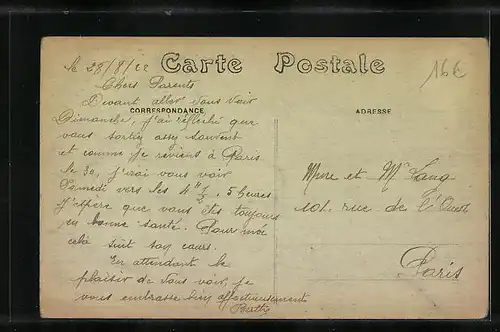 le 28/8/22
Carte Postale
16€
Chers Parents
Devant aller vous voir
CORRESPONDANCE
ADRESSE
Dimanche, j'ai réfléchi que
vous sortiez assez souvent
et comme je reviens à Paris
le 30, j'irai vous voir
Samedi vers les 4 h 1/2, 5 heures
J'espère que vous êtes toujours
en bonne santé. Pour moi
cela suit son cours.
En attendant le
plaisir de vous voir, je
vous embrasse bien affectueusement
Berthe
et Mme Lang
101. rue de l'Ouest
Paris